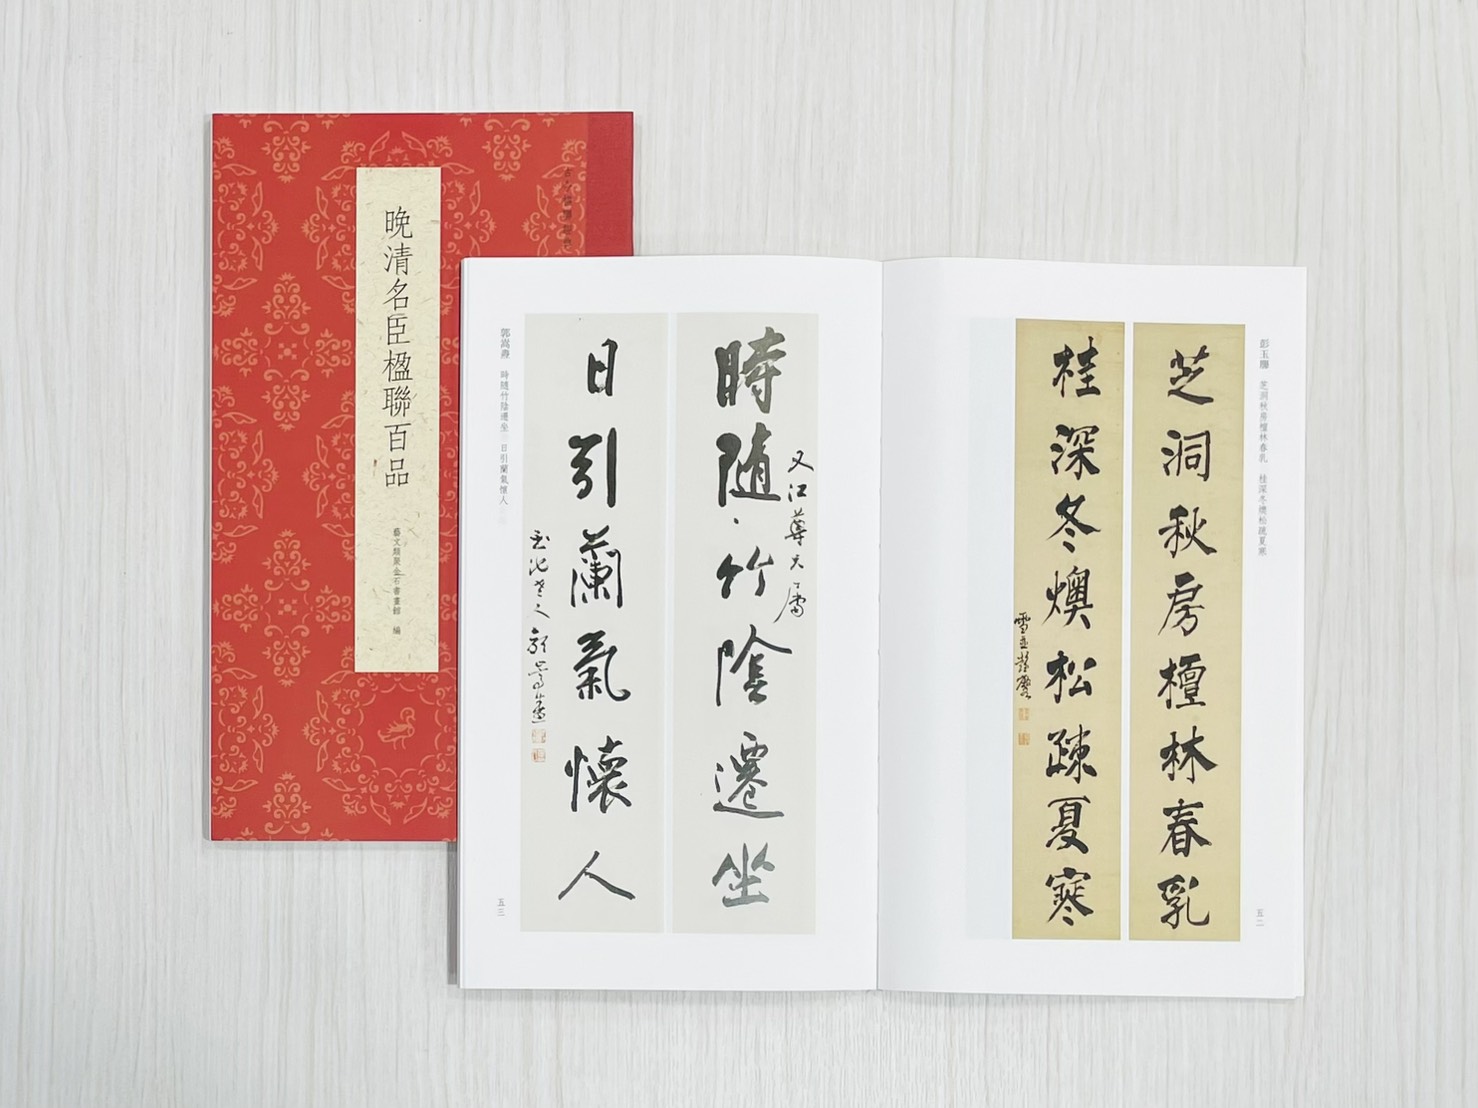 晚清名臣楹聯百品
藝文類聚金石書畫館 編
彭玉麐 芝洞秋房檀林春乳 桂深冬燠松疏夏寒
芝洞秋房檀林春乳
桂深冬燠松疎夏寒
雪
五二
時隨竹陰遷坐
又江尊大
日引蘭氣懷人
玉池老人郭嵩燾
郭嵩燾 時隨竹陰遷坐 日引蘭氣懷人
五三